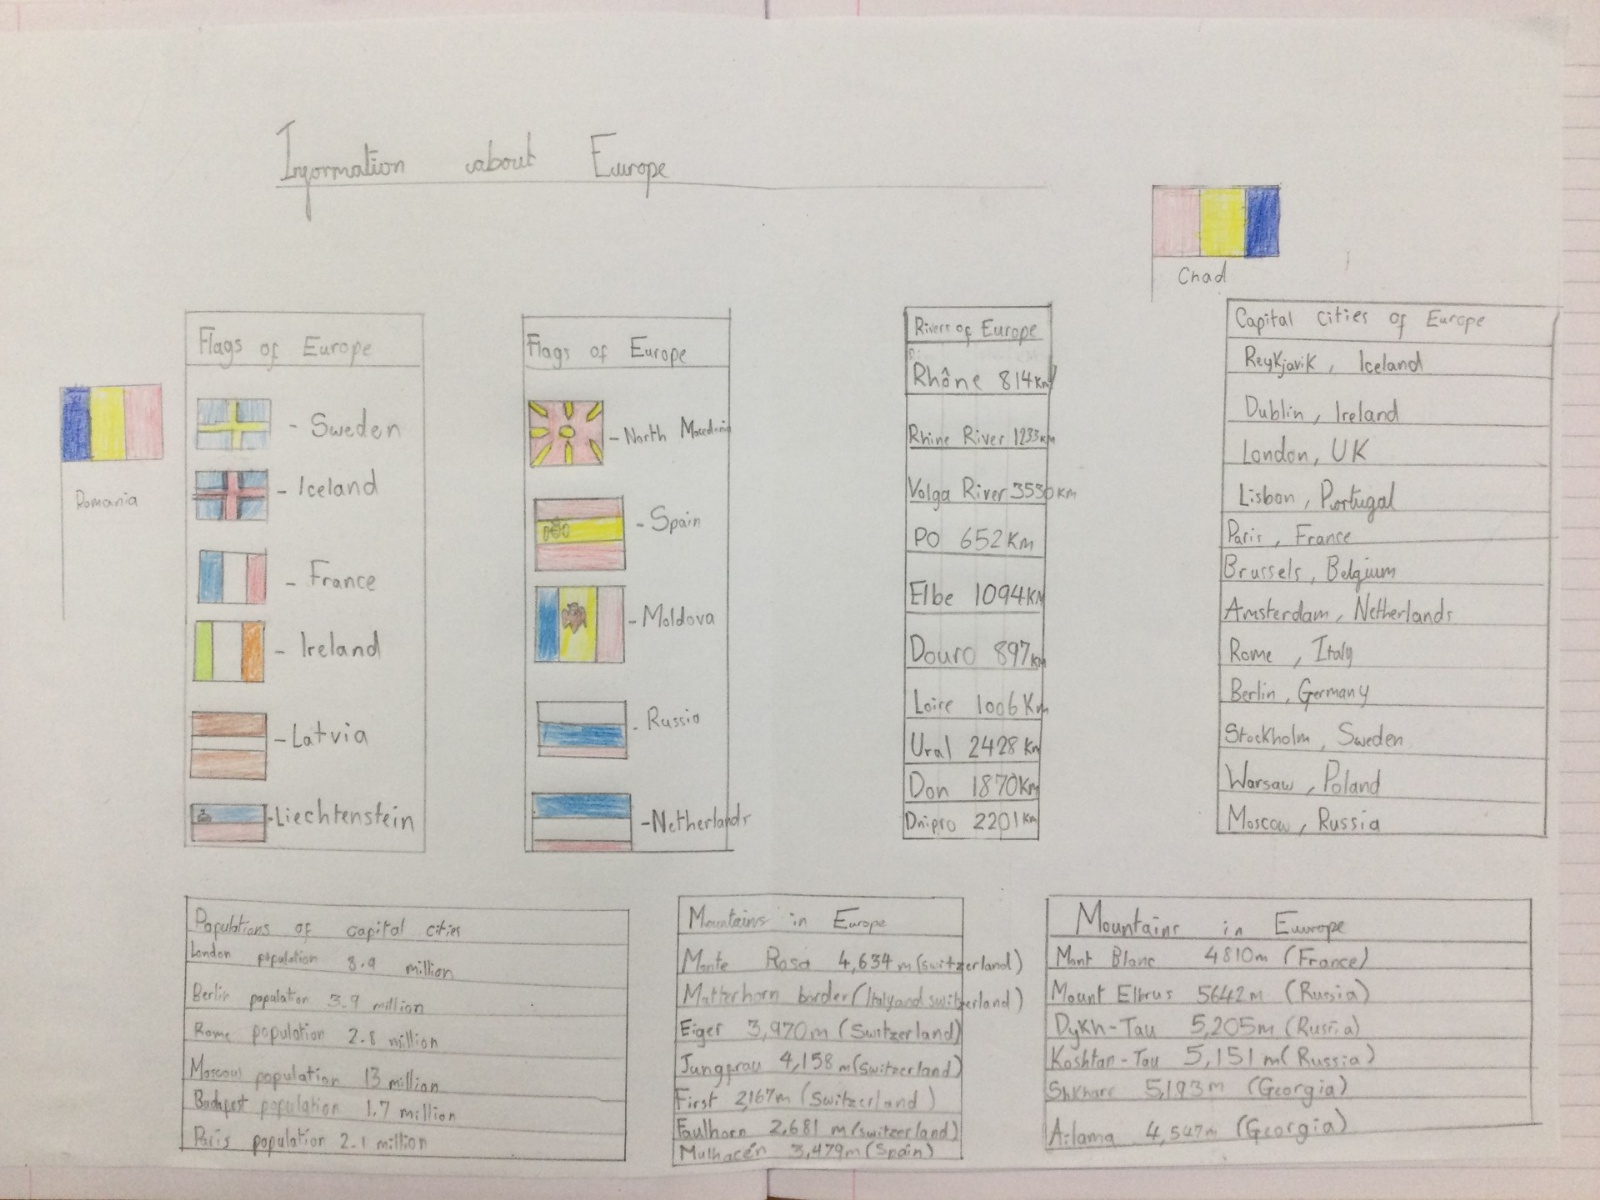 Information about Europe
Chad
Romania
Flags of Europe
- Sweden
- Iceland
- France
- Ireland
- Latvia
- Liechtenstein
Flags of Europe
- North Macedonia
- Spain
- Moldova
- Russia
- Netherlands
Rivers of Europe
Rhône 814Km
Rhine River 1233km
Volga River 3530km
PO 652Km
Elbe 1094KM
Douro 897km
Loire 1006Km
Ural 2428 Km
Don 1870Km
Dnipro 2201 Km
Capital Cities of Europe
Reykjavik, Iceland
Dublin, Ireland
London, UK
Lisbon, Portugal
Paris, France
Brussels, Belgium
Amsterdam, Netherlands
Rome, Italy
Berlin, Germany
Stockholm, Sweden
Warsaw, Poland
Moscow, Russia
Populations of capital cities
London population 8.9 million
Berlin population 3.9 million
Rome population 2.8 million
Moscow population 13 million
Budapest population 1.7 million
Paris population 2.1 million
Mountains in Europe
Monte Rosa 4,634 m (Switzerland)
Matterhorn border (Italy and switzerland)
Eiger 3,970m (Switzerland)
Jungfrau 4,158 m (Switzerland)
First 2,167m (Switzerland)
Faulhorn 2,681 m (switzerland)
Mulhacén 3,479m (Spain)
Mountains in Europe
Mont Blanc 4810m (France)
Mount Elbrus 5642m (Russia)
Dykh-Tau 5,205m (Russia)
Koshtan-Tau 5,151 m (Russia)
Shkhara 5,193m (Georgia)
Ailama 4,547m (Georgia)